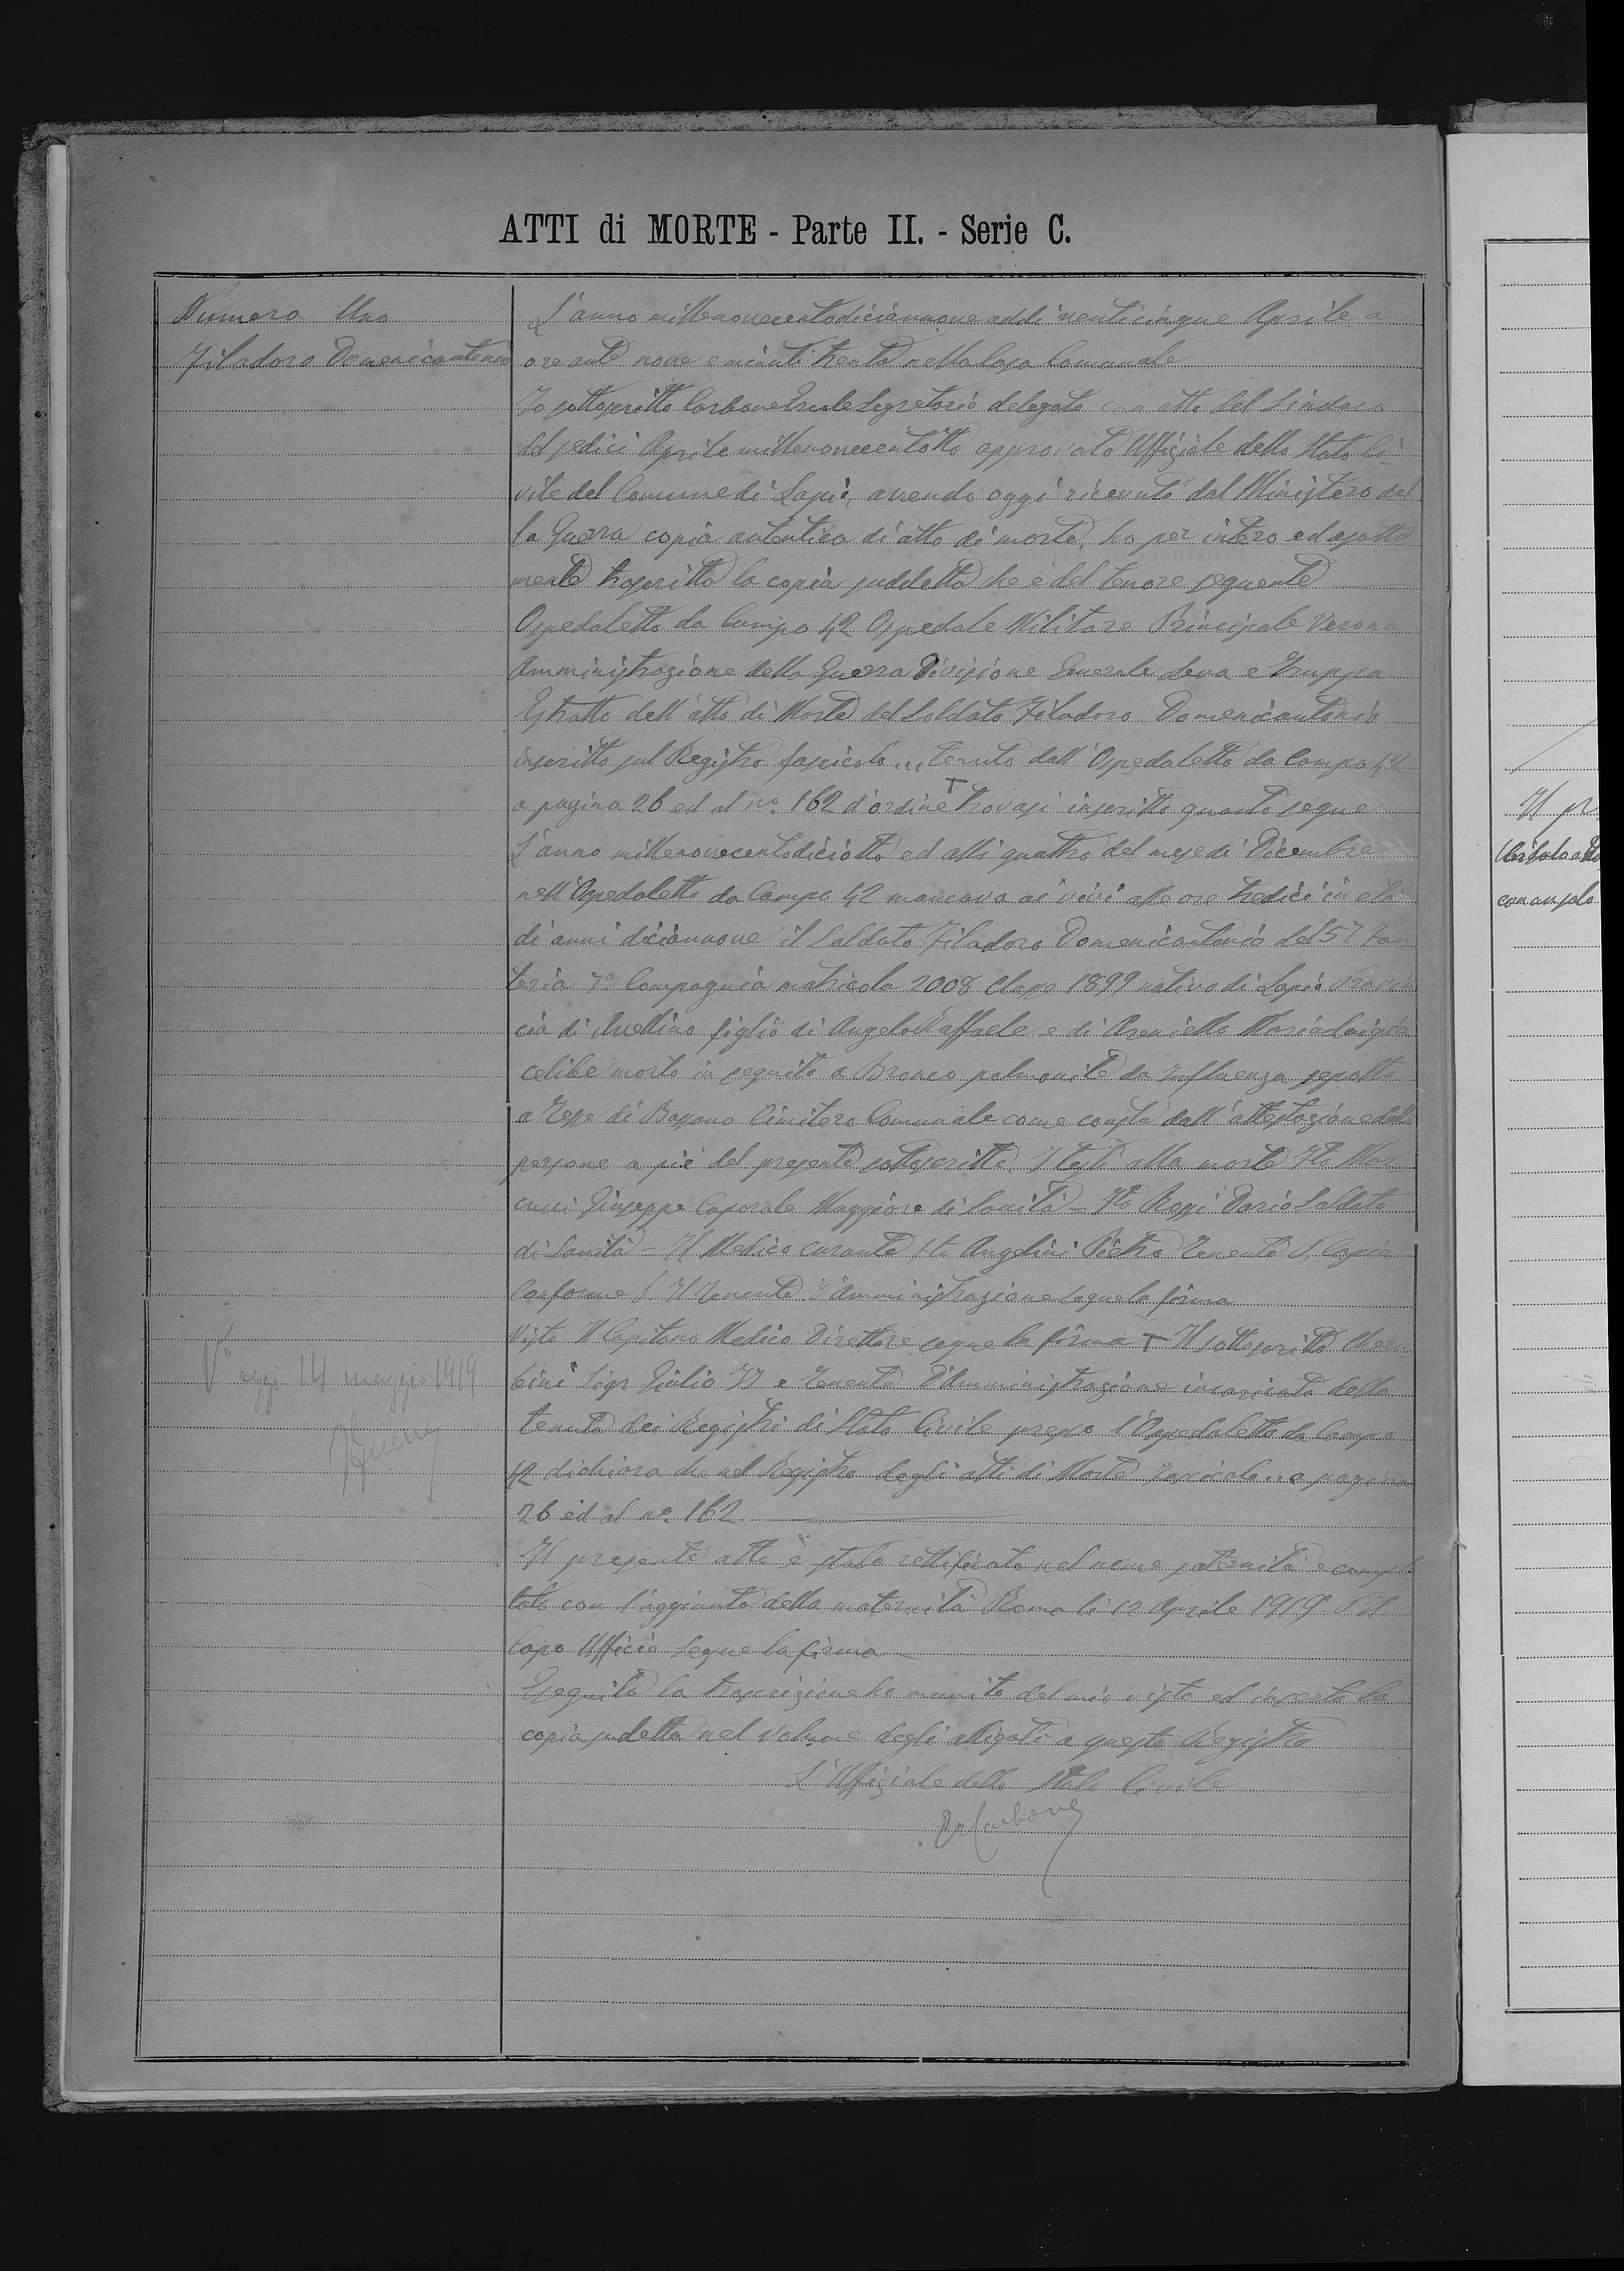 ATTI di MORTE - Parte II. - Serie C.
Numero Uno
Filadoro Domenicantonio
L'anno millenovecentodiciannove addi venticinque Aprile a
ore anti nove e minuti trenta nella Casa Comunale
Io sottoscritto Carbone Ercole Segretario delegato con atto del Sindaco
del sedici Aprile millenovecentotto approvato Uffiziale dello Stato Ci-
vile del Comune di Lapio, avendo oggi ricevuto dal Ministero del
la Guerra copia autentica di atto di morte, ho per intero ed esatta
mente trascritto la copia suddetta che è del tenore seguente
Ospedaletto da Campo 42 Ospedale Militare Principale Verona
Amministrazione della Guerra Divisione Generale Leva e Truppa
Estratto dell'atto di Morte del Soldato Filadoro Domenicantonio
inscritto sul Registro fascicolo ... tenuto dall'Ospedaletto da Campo 42
a pagina 26 ed al n.º 162 d'ordine T trovasi inscritto quanto segue
L'anno millenovecentodiciotto ed alli quattro del mese di Dicembre
nell'Ospedaletto da Campo 42 mancava ai vivi alle ore tredici in età
di anni diciannove il Soldato Filadoro Domenicantonio del 57 Fan
teria 7ª Compagnia matricola 2008 Classe 1899 nativo di Lapio Provin
cia di Avellino figlio di Angelo Raffaele e di Areniello Maria Luigia
celibe morto in seguito a Bronco polmonite da Influenza sepolto
a Tezze di Bassano Cimitero Comunale come consta dall'attestazione delle
persone a piè del presente sottoscritte. I testi alla morte Fto Mar
cucci Giuseppe Caporale Maggiore di Sanità - Fto Rossi Dario Soldato
di Sanità - Il Medico curante fto Angelini Pietro Tenente P. Copia
Conforme P. Il Tenente d'Amministrazione Segue la firma
Visto Il Capitano Medico Direttore segue la firma T Il sottoscritto Cheru
bini Sigr Giulio Tenente d'Amministrazione incaricato della
tenuta dei Registri di Stato Civile presso l'Ospedaletto da Campo
42 dichiara che nel Registro degli atti di Morte Fascicolo .. a pagina
26 ed al n.º 162
Il presente atto è stato rettificato nel nome paternità e comple
tato con l'aggiunta della maternità Roma li 12 Aprile 1919 P. Il
Capo Ufficio Segue la firma
Eseguita la trascrizione ho munito del mio visto ed inserta la
copia sudetta nel volume degli alligati a questo Registro
L'Uffiziale dello Stato Civile
Er Carbone
Vº oggi 14 maggio 1919
Il pr
con angolo